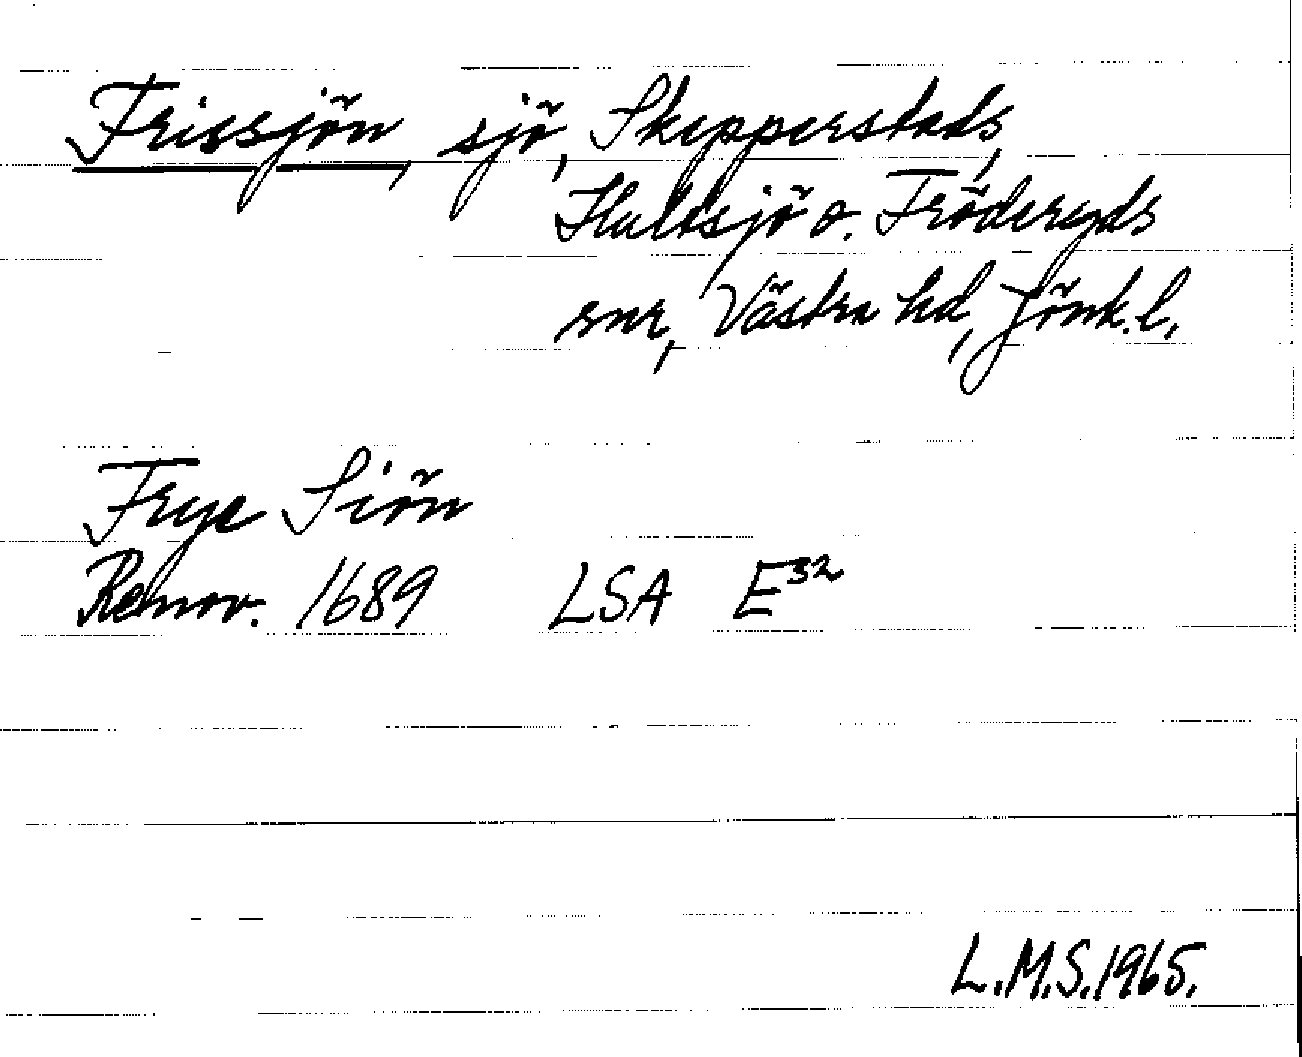 Frissjön, sjö, Skepperstads,
Hultsjö o. Fröderyds
snr, Västra hd, Jönk.l.
Frye Siön
Renov. 1689 LSA E32
L.M.S.1965.